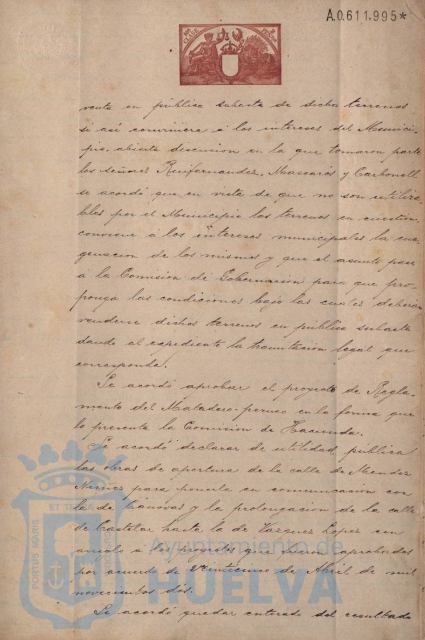 A.0.611.995*
venta en pública subasta de dichos terrenos
si así conviniere á los intereses del Munici-
pio, abierta discusion en la que tomaron parte
los señores Ruifernandez, y Carbonell
se acordó que en vista de que no son utiliza-
bles por el Municipio los terrenos en cuestion,
conviene á los intereses municipales la ena-
genacion de los mismos y que el asunto pase
á la Comision de Gobernacion para que pro-
ponga las condiciones bajo las cuales deberan
venderse dichos terrenos en pública subasta
dando al expediente la tramitacion legal que
corresponde.
Se acordó aprobar el proyecto de Regla-
mento del Matadero público en la forma que
lo presenta la Comision de Hacienda.
Se acordó declarar de utilidad pública
las obras de apertura de la calle de Mendez
Nuñez para ponerla en comunicacion con
la de Canovas y la prolongacion de la calle
de Castelar hasta la de Vazquez Lopez con
arreglo á los proyectos que fueron aprobados
por acuerdo de veinticinco de Abril de mil
novecientos dos.
Se acordó quedar enterado del resultado
PORTUS MARIS
ET TERRÆ
Ayuntamiento de
HUELVA